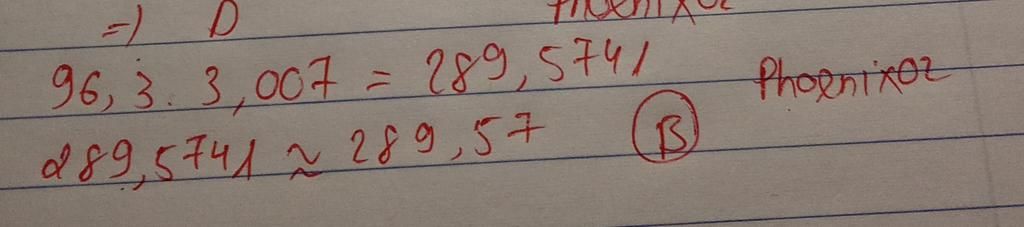 =) D
Phoenix02
96,3. 3,007 = 289,5741
Phoenix02
289,5741 ≈ 289,57 B